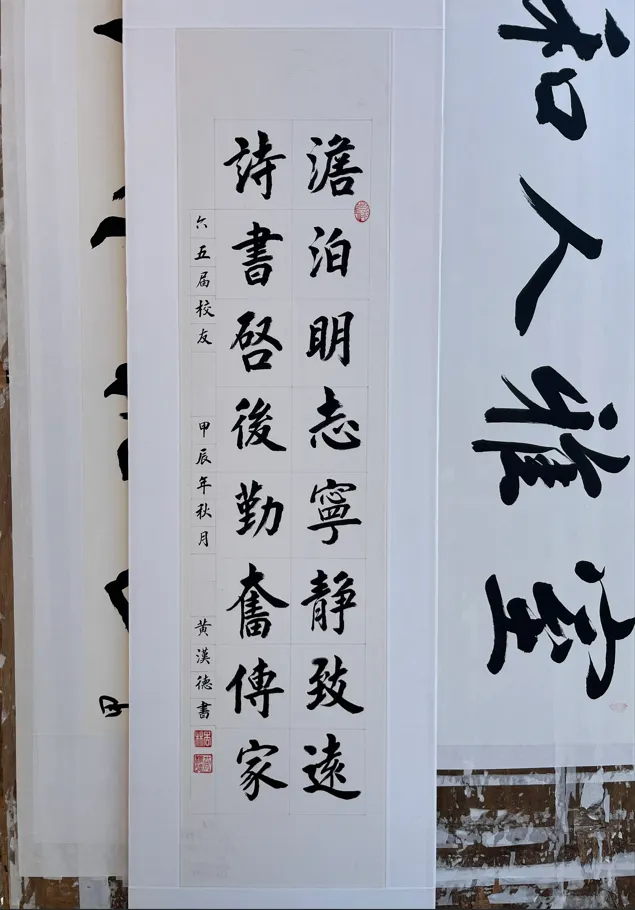 澹泊明志寧静致遠
詩書啓後勤奮傳家
六五届校友 甲辰年秋月 黄漢德書
和人雅室